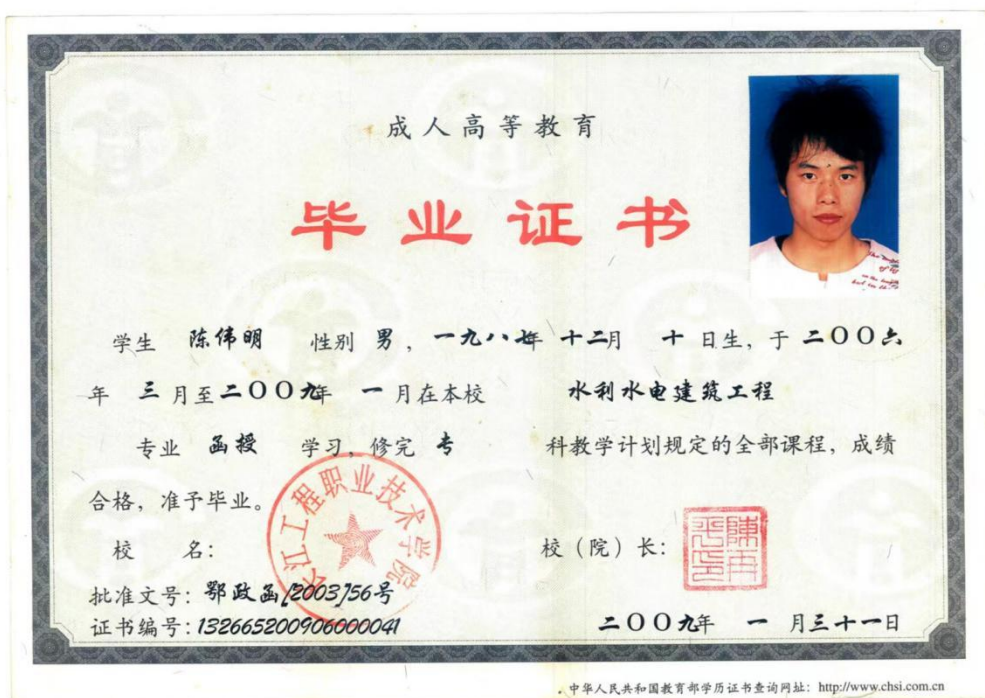 成人高等教育
毕业证书
学生 陈伟明 性别 男，一九八七年 十二月 十日生，于 二〇〇六
年 三月至二〇〇九年 一月在本校 水利水电建筑工程
专业 函授 学习，修完 专 科教学计划规定的全部课程，成绩
合格，准予毕业。
长江工程职业技术学院
校 名：
校（院）长：
陈再平印
批准文号：鄂政函[2003]56号
证书编号：132665200906000041
二〇〇九年 一 月三十一日
中华人民共和国教育部学历证书查询网址：http://www.chsi.com.cn